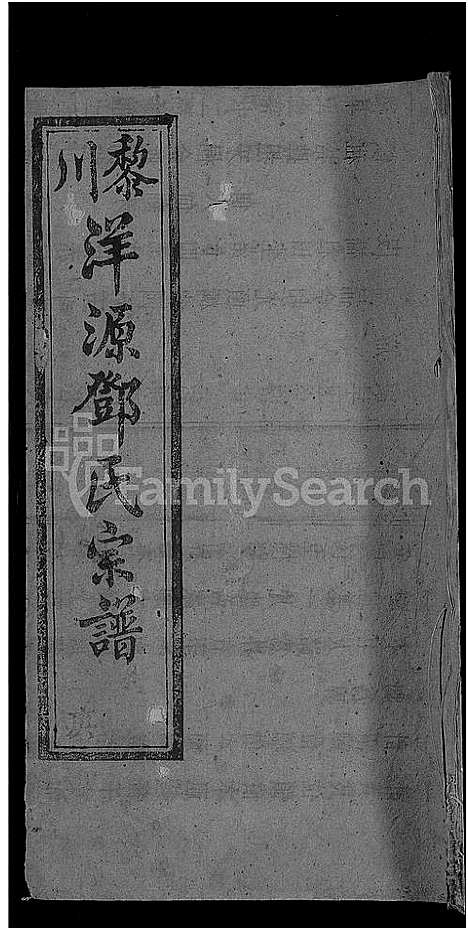 黎川
洋源鄧氏宗譜
FamilySearch